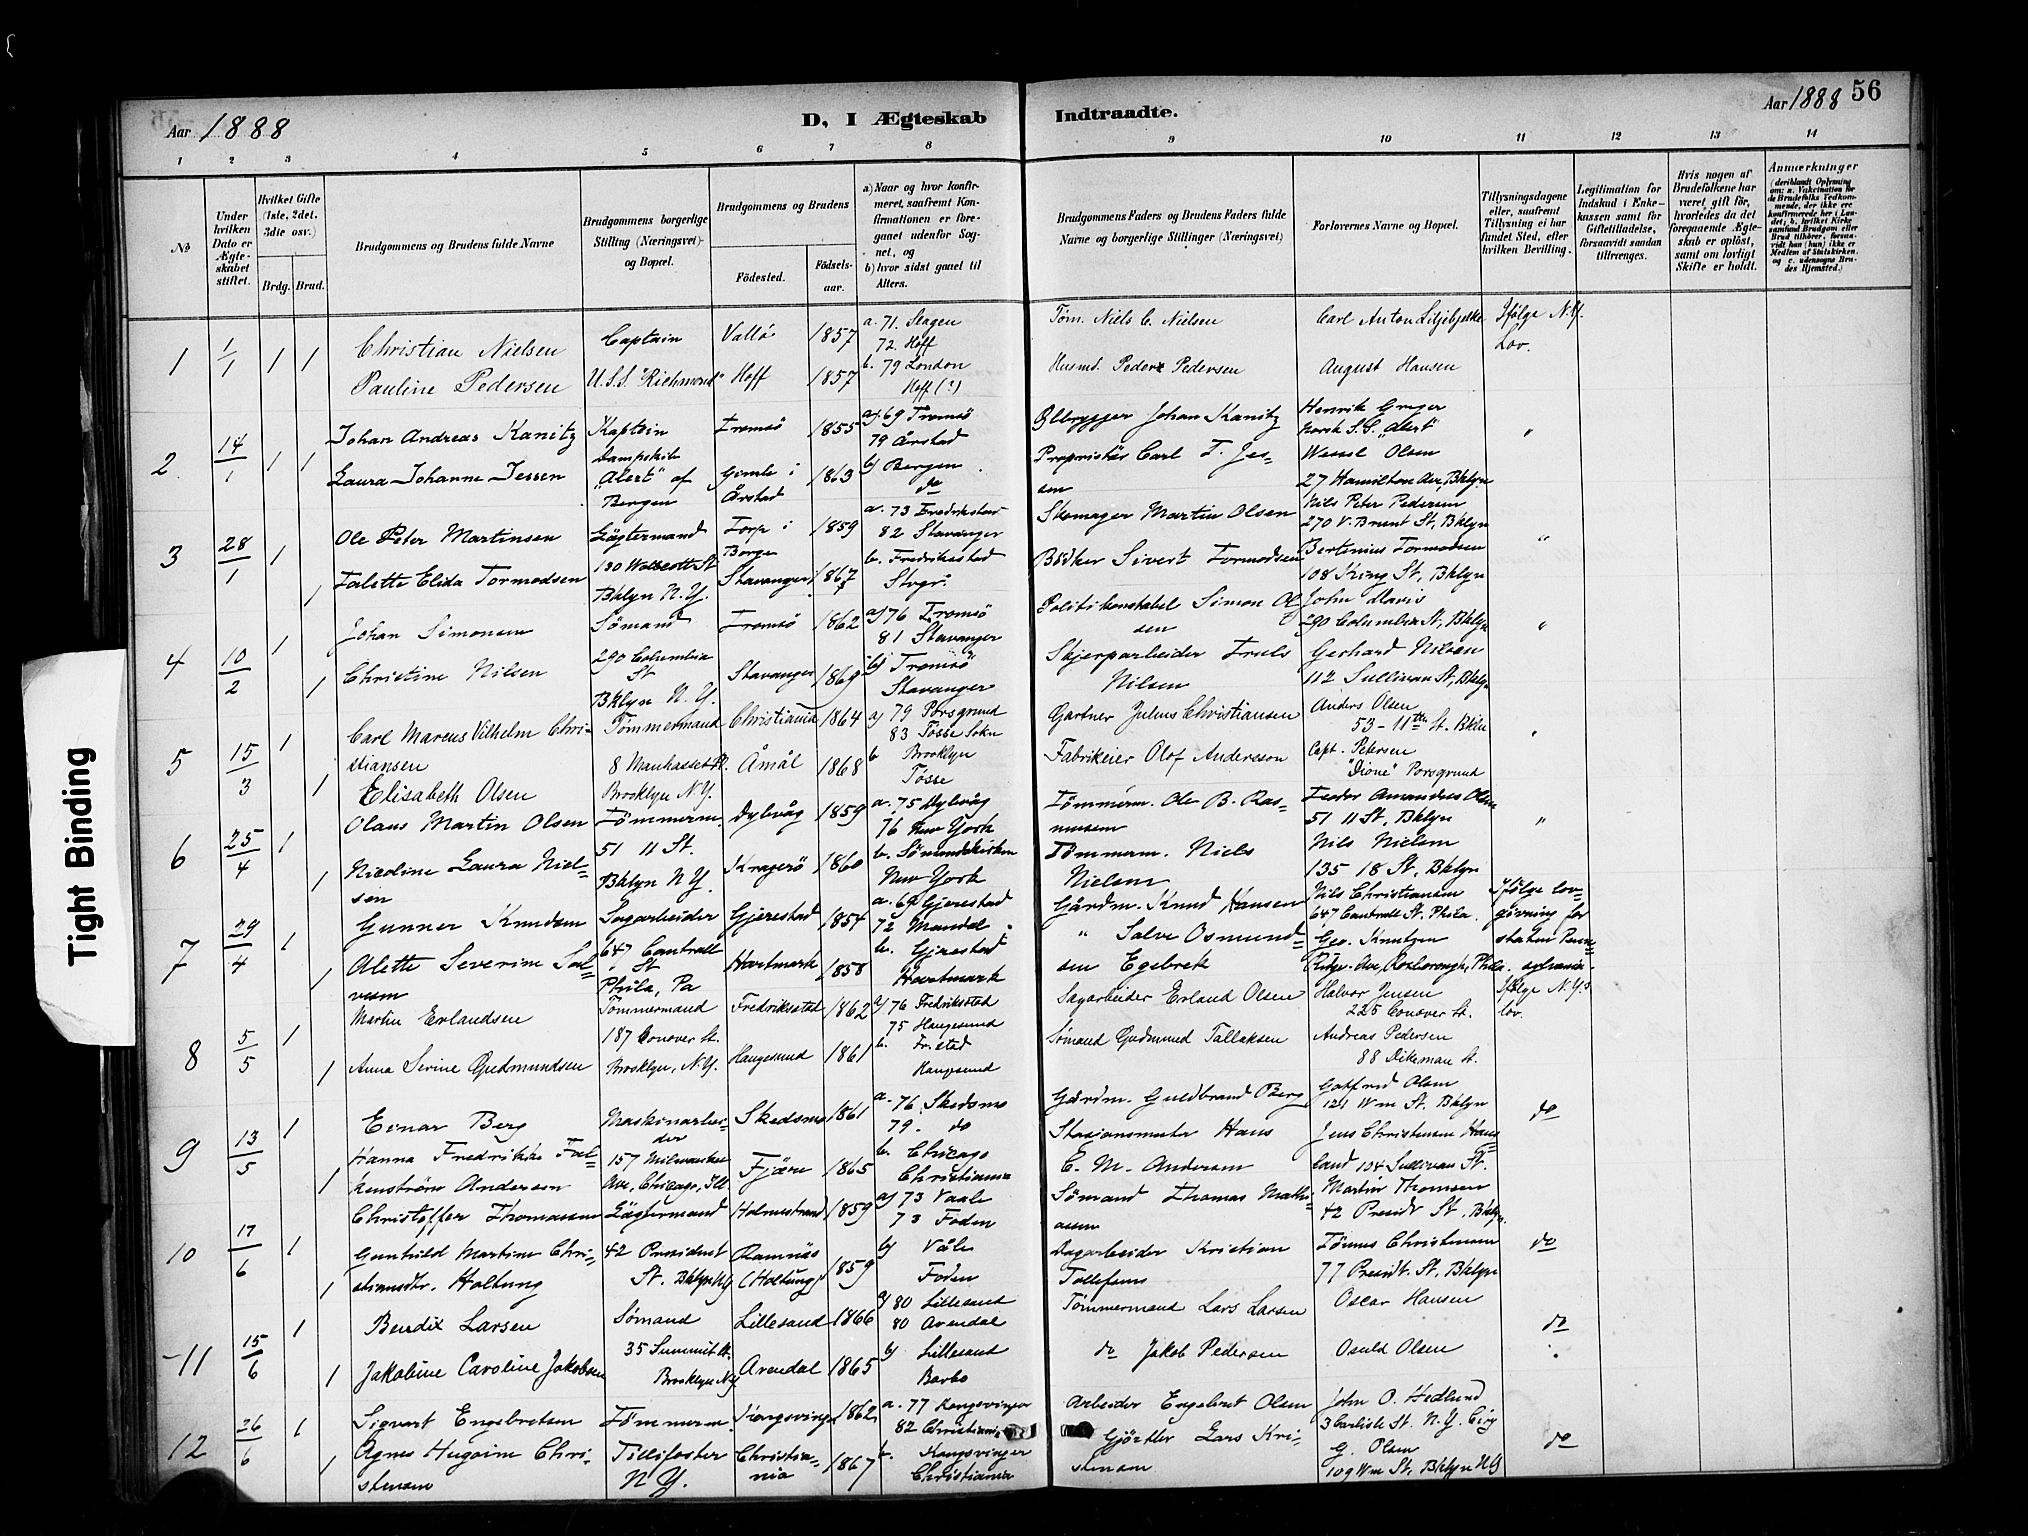 Tight Binding
Aar 1888
D, I Ægteskab Indtraadte.
Aar 1888 56
1 2 3 4 5 6 7 8 9 10 11 12 13 14
No
Under hvilken Dato er Ægteskabet stiftet.
Hvilket Gifte (1ste, 2det, 3die osv.)
Brdg. Brud.
Brudgommens og Brudens fulde Navne
Brudgommens borgerlige Stilling (Næringsvei) og Bopæl.
Brudgommens og Brudens
Födested. Födselsaar.
a) Naar og hvor konfirmeret, saafremt Konfirmationen er foregaaet udenfor Sognet, og
b) hvor sidst gaaet til Alters.
Brudgommens Faders og Brudens Faders fulde Navne og borgerlige Stillinger (Næringsvei)
Forlovernes Navne og Bopæl.
Tillysningsdagene eller, saafremt Tillysning ei har fundet Sted, efter hvilken Bevilling.
Legitimation for Indskud i Enkekassen samt for Giftetilladelse, forsaavidt saadan tiltrænges.
Hvis nogen af Brudefolkene har været gift før, hvorledes da det foregaaende Ægteskab er oplöst, samt om lovligt Skifte er holdt.
Anmærkninger
(deriblandt Oplysning om: a. Vakcination for de Brudefolks Vedkommende, der ikke ere konfirmerede her i Landet; b. hvilket Kirkesamfund Brudgom eller Brud tilhörer, forsaavidt han (hun) ikke er Medlem af Statskirken, og c. udensogns Brudes Hjemsted.)
1 1/1 1 1 Christian Nielsen Captain Vallö 1857 a. 71. Slagen 72. Hoff Töm. Niels C. Nielsen Carl Anton Liljebjelke Ifölge N.Y. Lov.
Pauline Pedersen U.S.S. "Richmond" Hoff 1857 b. 79 London Hoff (?) Husmd. Peder Pedersen August Hansen
2 14/1 1 1 Johan Andreas Kanitz Kaptein Tromsö 1855 a). 69 Tromsö 79 Årstad Ölbrygger Johan Kanitz Henrik Greger Norsk S.S. "Alert" "
Laura Johanne Jessen Dampskib "Alert" af Bergen Gimle i Årstad 1863 b) Bergen do Proprietär Carl F. Jessen Wessel Olsen 27 Hamilton Ave, Bklyn
3 28/1 1 Ole Peter Martinsen Lägtermand Torp i Borge 1859 a. 73 Fredrikstad 82 Stavanger Skomager Martin Olsen Nils Peter Pedersen 270 V. Brunt St, Bklyn "
1 Talette Elida Tormodsen 130 Wolscott St Bklyn N.Y. Stavanger 1867 b. Fredriksstad Stvgr. Bödker Sivert Tormodsen Bertinius Tormodsen 108 King St, Bklyn
4 10/2 1 Johan Simonsen Sömand Tromsö 1862 a) 76 Tromsö 81 Stavanger Politikonstabel Simon Olsen John Davis 290 Columbia St, Bklyn "
1 Christine Nilsen 290 Columbia St Bklyn N.Y. Stavanger 1869 b) Tromsö Stavanger Skjerparbeider Truls Nilsen Gerhard Nilsen 112 Sullivan St, Bklyn
5 15/3 1 Carl Marcus Vilhelm Christiansen Tömmermand Christiania 1864 a) 79 Porsgrund 83 Tösse Sokn Gartner Julius Christiansen Anders Olsen 53 - 11th St. Bkln "
1 Elisabeth Olsen 8 Manhasset Pl. Brooklyn N.Y. Åmål 1868 b Brooklyn Tösse Fabrikeier Olof Andersson Capt. Petersen "Dione" Porsgrund
6 25/4 1 Olaus Martin Olsen Tömmerm. Dybvåg 1859 a. 75 Dybvåg 76 New York Tömmerm. Ole B. Rasmussen Teodor Amandus Olsen 51 11 St, Bklyn "
1 Nicoline Laura Nielsen 51 11 St. Bklyn N.Y. Kragerö 1860 b. Sömandskirken New York Tömmerm. Niels Nielsen Nils Nielsen 135 18 St, Bklyn
7 29/4 1 Gunner Knudsen Sagarbeider Gjerestad 1854 a. 69 Gjerestad 72 Mandal Gårdm. Knud Hansen Nils Christiansen 647 Cantrell St. Phila. Ifölge lovgivning for staten Pennsylvania.
1 Alette Severine Salvesen 647 Cantrell St Phila, Pa Hartmark 1858 b. Gjerestad Hartmark " Salve Osmundsen Egebrek Geo. Knutzen Ridge Ave, Roxborough, Phila.
8 5/5 1 Martin Erlandsen Tömmermand Fredriksstad 1862 a) 76 Fredriksstad 75 Haugesund Sagarbeider Erland Olsen Halvor Jensen 225 Conover St. Ifölge N.Y.s lov.
1 Anna Serine Gudmundsen 187 Conover St. Brooklyn, N.Y. Haugesund 1861 b. Fr.stad Haugesund Sömand Gudmund Tallaksen Andreas Pedersen 88 Dikeman St.
9 13/5 1 Einar Berg Maskinarbeider Skedsmo 1861 a. 76 Skedsmo 79. do Gårdm. Guldbrand Berg Gotfred Olsen 121 Wm St. Bklyn do
1 Hanna Fredrikke Falkenström Andersen 157 Milwaukee Ave, Chicago, Ill. Fjære 1865 b. Chicago Christiania Stasjonsmester Hans E. M. Andersen Jens Christensen Hausland 104 Sullivan St.
10 17/6 1 Christoffer Thomassen Lägtermand Holmestrand 1859 a) 73 Vaale 73 Foden Sömand Thomas Mathiassen Martin Thomsen 42 Presidt St, Bklyn. do
1 Gunhild Martine Christiansdtr. Holtung 42 President St. Bklyn NY Ramnäs (Holtung) 1859 b) Våle Foden Dagarbeider Kristian Tollefsens Tönnes Christensen 77 Presidt. St, Bklyn
11 15/6 1 Bendix Larsen Sömand Lillesand 1866 a) 80 Lillesand 80 Arendal Tömmermand Lars Larsen Oscar Hansen do
1 Jakobine Caroline Jakobsen 35 Summit St. Brooklyn NY Arendal 1865 b) Lillesand Barbo do Jakob Pedersen Osuld Olsen
12 26/6 1 Sigvart Engebretsen Tömmerm. Kongsvinger 1862 a. 77 Kongsvinger 82 Christiania Arbeider Engebret Olsen John O. Hedlund 3 Carlisle St. N.Y. City do
1 Agnes Hugoine Christensen Tillifoster N.Y. Christiania 1867 b. Kongsvinger Christiania Gjörtler Lars Kristensen G. Olsen 109 Wm St, Bklyn NY